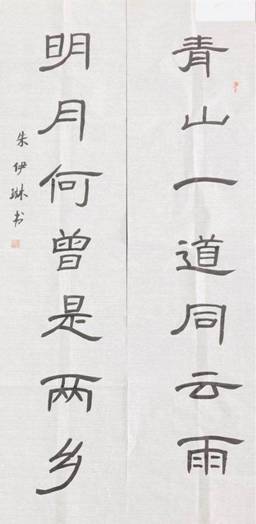 青山一道同云雨
明月何曾是两乡
朱伊琳书